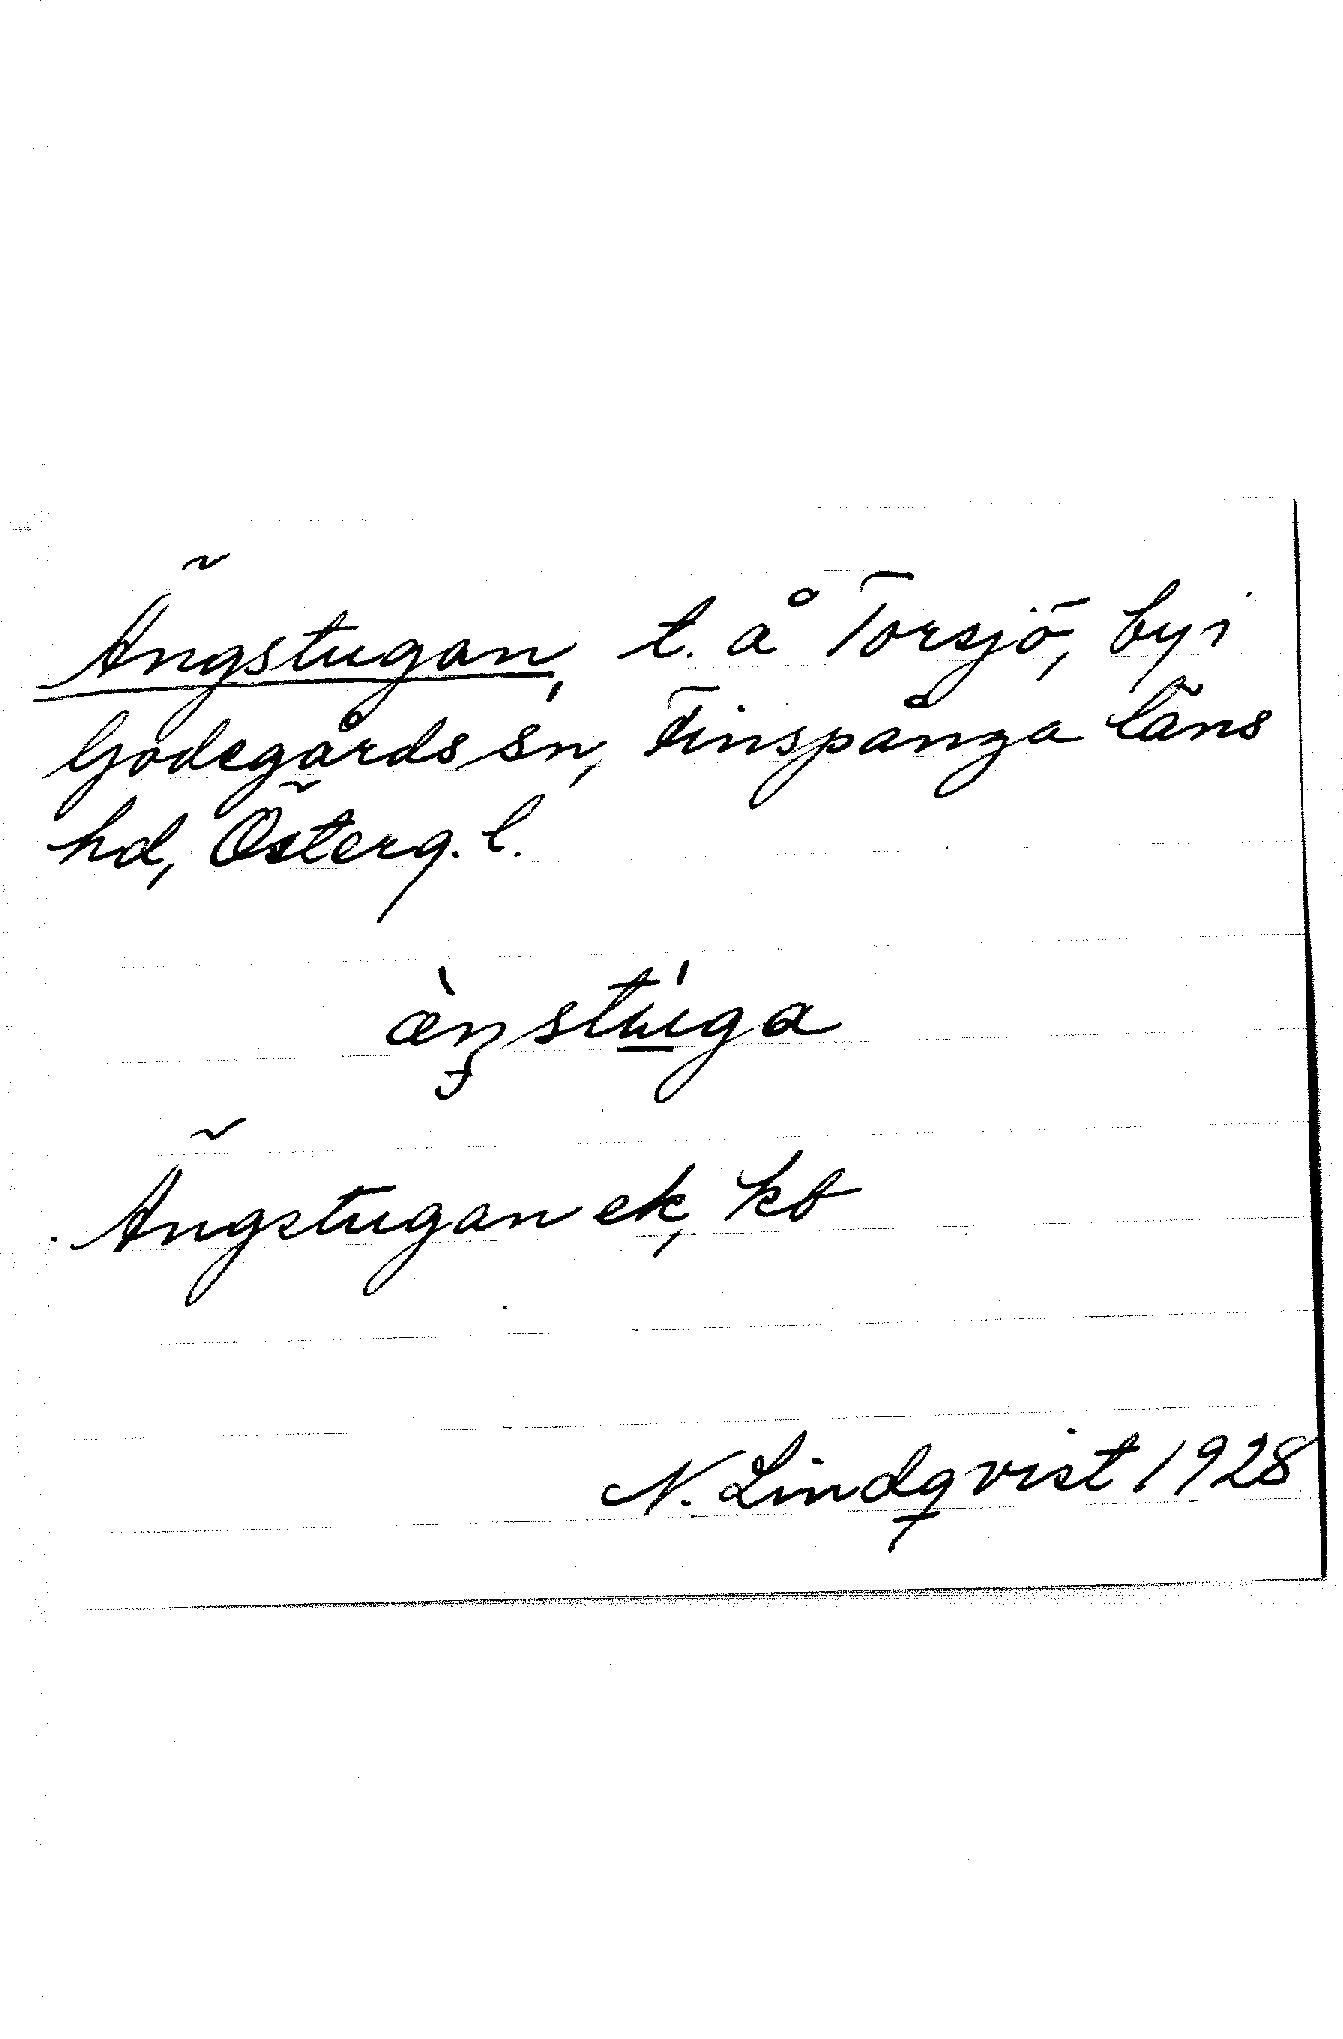 Ängstugan, t. å Torsjö, by i
Godegårds sn, Finspånga läns
hd, Österg. l.
æ̀ŋstúga
Ängstugan ek, kb
N. Lindqvist 1928